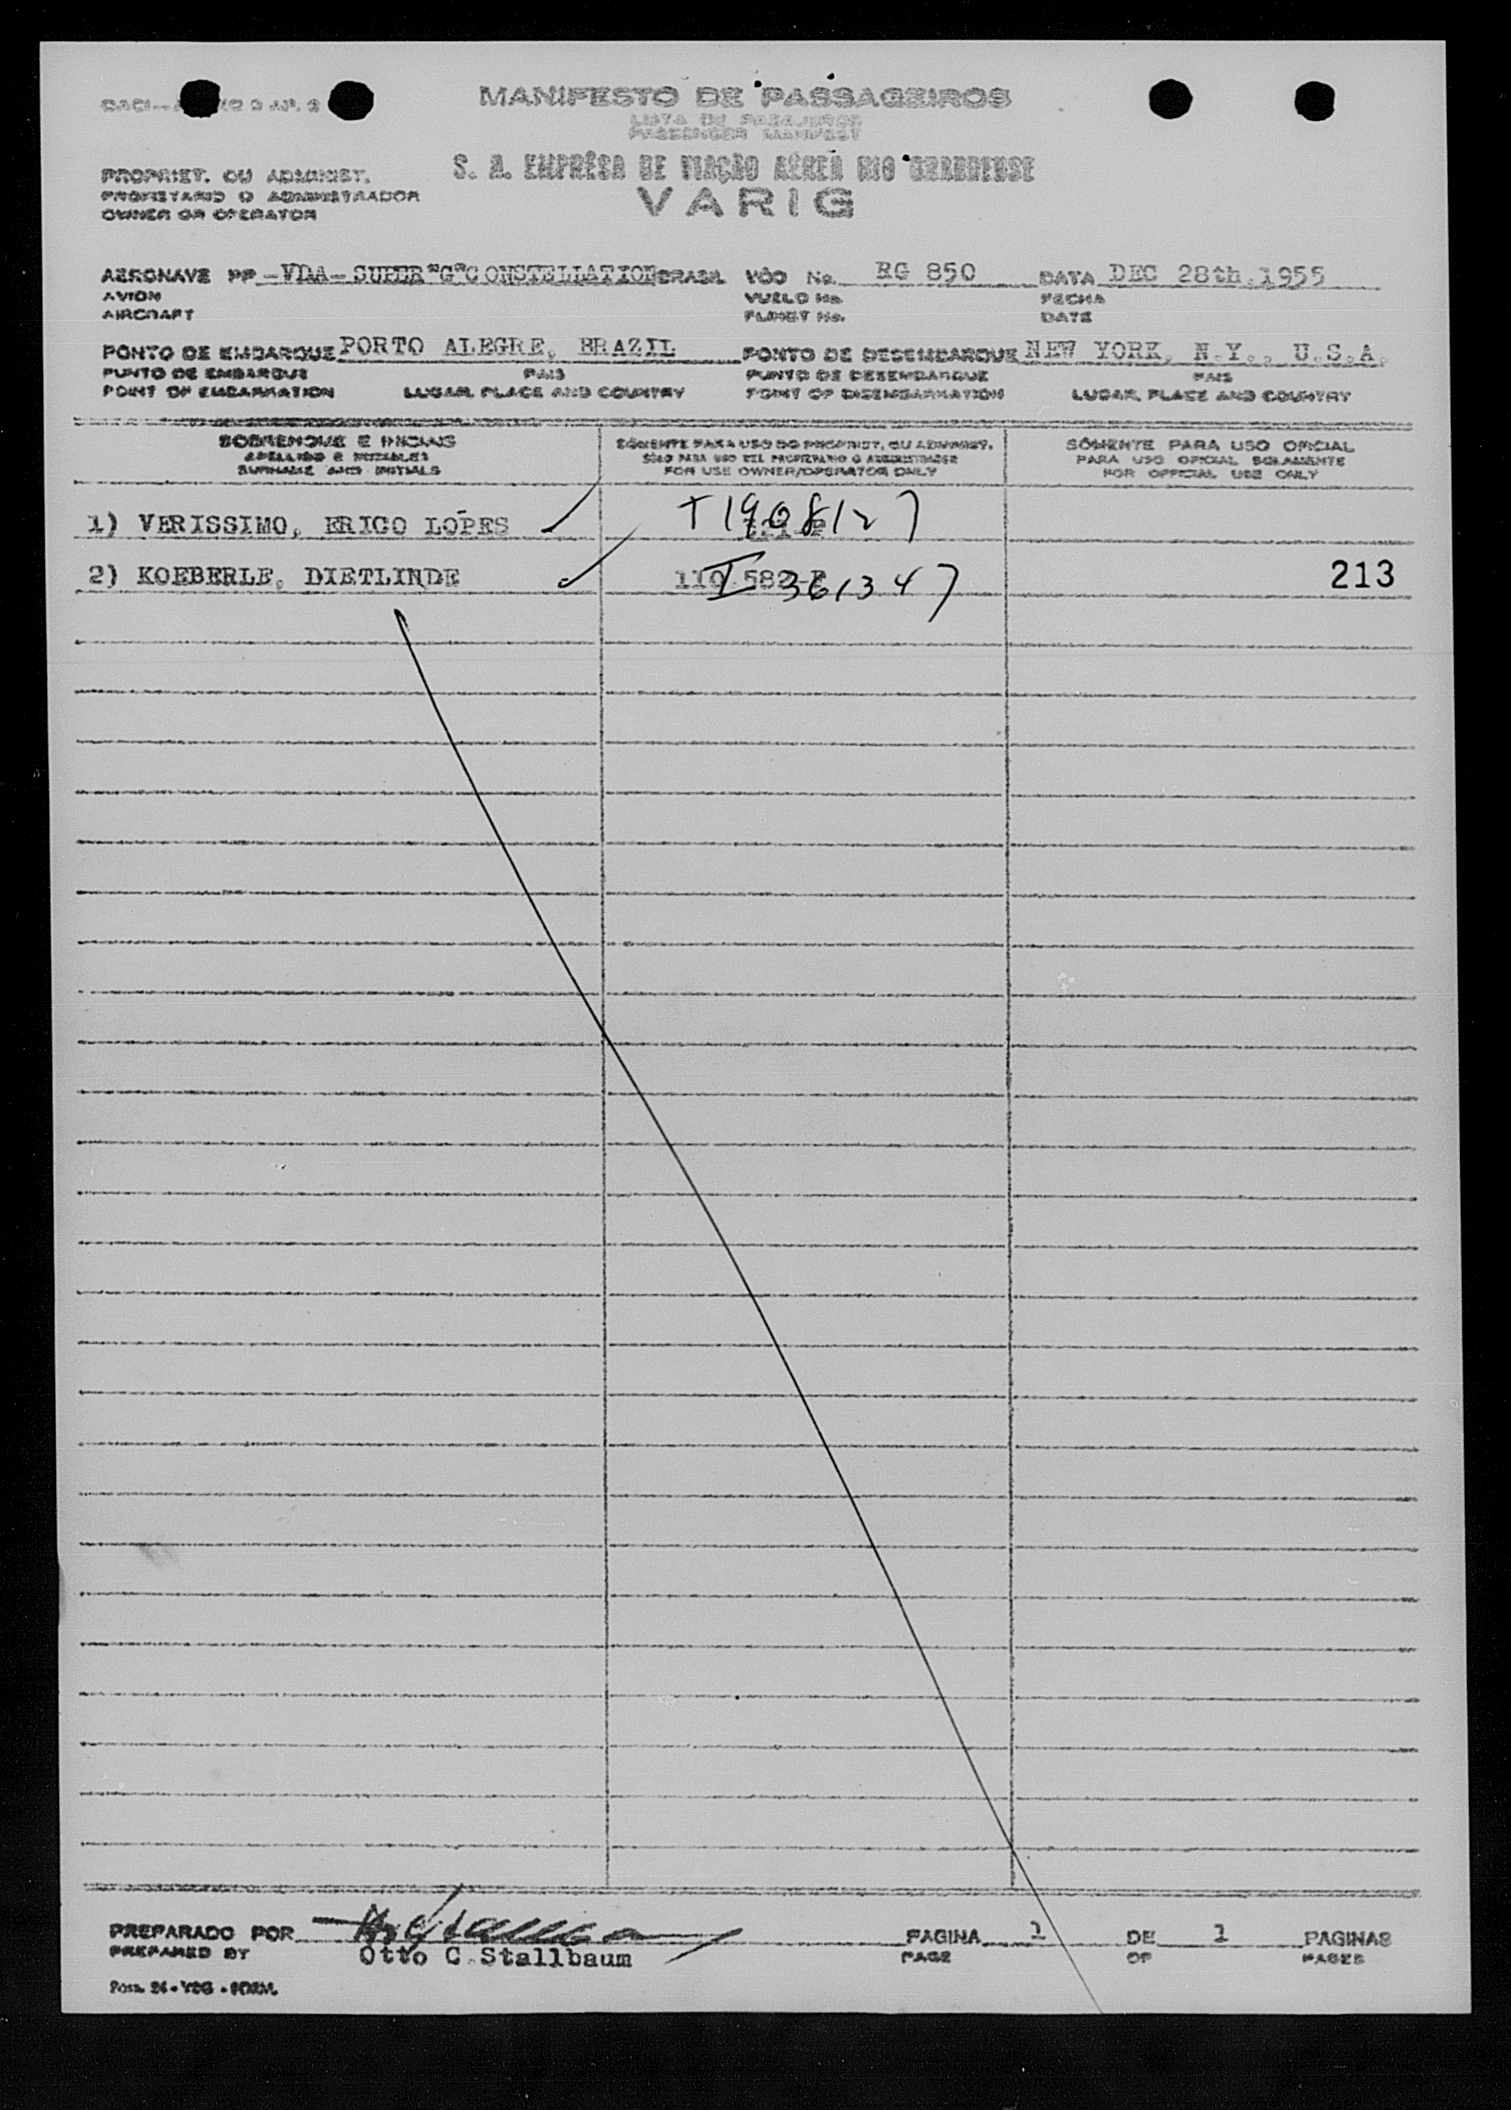 MANIFESTO DE PASSAGEIROS
LISTA DE PASAJEROS
PASSENGER MANIFEST
PROPRIET. OU ADMINIST.
PROPIETARIO O ADMINISTRADOR
OWNER OR OPERATOR
S. A. EMPRÊSA DE VIAÇÃO AÉREA RIO GRANDENSE
VARIG
AERONAVE PP -VDA- SUPER "G" CONSTELLATION BRASIL VÔO No. RG 850 DATA DEC 28th.1955
AVION VUELO No. FECHA
AIRCRAFT FLIGHT No. DATE
PONTO DE EMBARQUE PORTO ALEGRE, BRAZIL PONTO DE DESEMBARQUE NEW YORK, N.Y., U.S.A.
PUNTO DE EMBARQUE PAIS PUNTO DE DESEMBARQUE PAIS
POINT OF EMBARKATION LUGAR, PLACE AND COUNTRY POINT OF DISEMBARKATION LUGAR, PLACE AND COUNTRY
SOBRENOME E INICIAIS SÒMENTE PARA USO DO PROPRIET. OU ADMINIST. SÒMENTE PARA USO OFICIAL
APELLIDO E INICIALES SÓLO PARA USO DEL PROPIETARIO O ADMINISTRADOR PARA USO OFICIAL SOLAMENTE
SURNAME AND INITIALS FOR USE OWNER/OPERATOR ONLY FOR OFFICIAL USE ONLY
1) VERISSIMO, ERICO LOPES T 1908127
2) KOEBERLE, DIETLINDE I 361347 213
PREPARADO POR PAGINA 1 DE 1 PAGINAS
PREPARED BY Otto C. Stallbaum PAGE OF PAGES